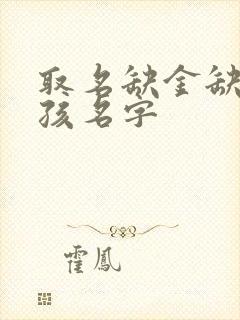 取名缺金缺
孩名字
霍鳳